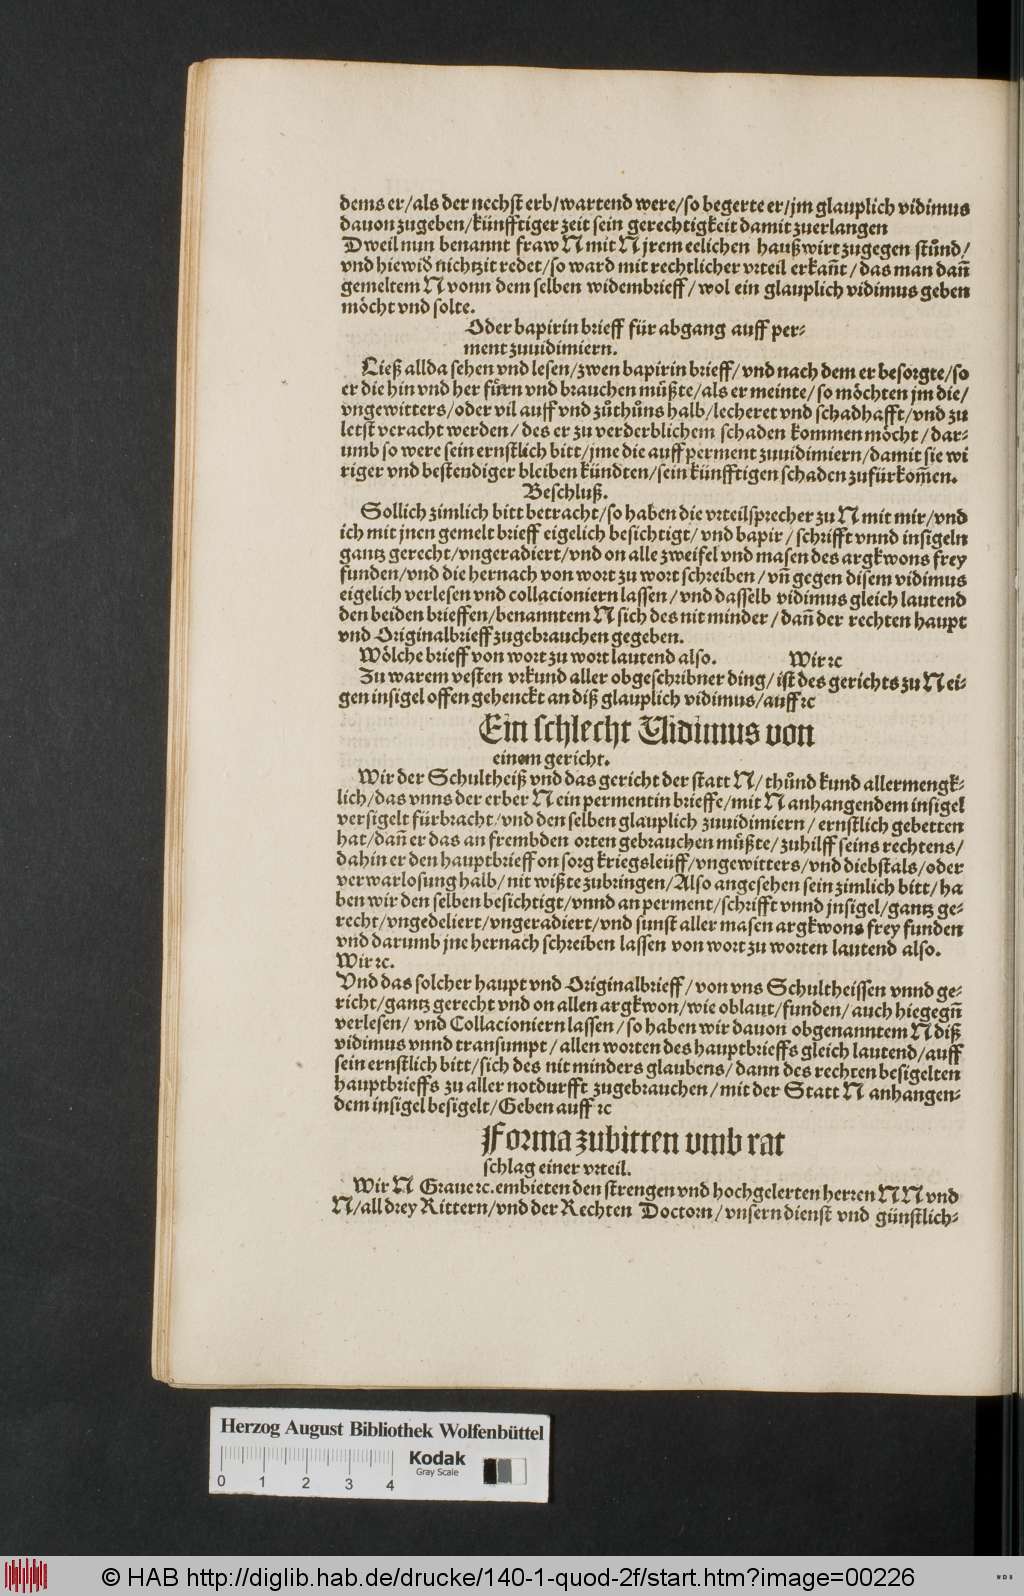 dems er/als der nechst erb/wartend were/so begerte er/jm glauplich vidimus
dauon zugeben/künfftiger zeit sein gerechtigkeit damit zuerlangen
Dweil nun benannt fraw N mit N jrem eelichen haußwirt zugegen stůnd/
vnd hiewid̾ nichtzit redet/so ward mit rechtlicher vrteil erkañt/das man dañ
gemeltem N vonn dem selben widembrieff/wol ein glauplich vidimus geben
möcht vnd solte.
Oder bapirin brieff für abgang auff per-
ment zuuidimiern.
Ließ allda sehen vnd lesen/zwen bapirin brieff/vnd nach dem er besorgte/so
er die hin vnd her fůrn vnd brauchen můßte/als er meinte/so möchten jm die/
vngewitters/oder vil auff vnd zůthůns halb/lecheret vnd schadhafft/vnd zu
letst veracht werden/des er zu verderblichem schaden kommen möcht/dar-
umb so were sein ernstlich bitt/jme die auff perment zuuidimiern/damit sie wi
riger vnd bestendiger bleiben kündten/sein künfftigen schaden zufürkom̃en.
Beschluß.
Sollich zimlich bitt betracht/so haben die vrteilsprecher zu N mit mir/vnd
ich mit jnen gemelt brieff eigelich besichtigt/vnd bapir/schrifft vnnd insigeln
gantz gerecht/vngeradiert/vnd on alle zweifel vnd masen des argkwons frey
funden/vnd die hernach von wort zu wort schreiben/vñ gegen disem vidimus
eigelich verlesen vnd collacioniern lassen/vnd dasselb vidimus gleich lautend
den beiden brieffen/benanntem N sich des nit minder/dañ der rechten haupt
vnd Originalbrieff zugebrauchen gegeben.
Wölche brieff von wort zu wort lautend also. Wir ꝛc
Zu warem vesten vrkund aller obgeschribner ding/ist des gerichts zu N ei-
gen insigel offen gehenckt an diß glauplich vidimus/auff ꝛc
Ein schlecht Vidimus von
einem gericht.
Wir der Schultheiß vnd das gericht der statt N/thůnd kund allermengk-
lich/das vnns der erber N ein permentin brieffe/mit N anhangendem insigel
versigelt fürbracht/vnd den selben glauplich zuuidimiern/ernstlich gebetten
hat/dañ er das an frembden orten gebrauchen můßte/zuhilff seins rechtens/
dahin er den hauptbrieff on sorg kriegsleüff/vngewitters/vnd diebstals/oder
verwarlosung halb/nit wißte zubringen/Also angesehen sein zimlich bitt/ha
ben wir den selben besichtigt/vnnd an perment/schrifft vnnd jnsigel/gantz ge-
recht/vngedeliert/vngeradiert/vnd sunst aller masen argkwons frey funden
vnd darumb jne hernach schreiben lassen von wort zu worten lautend also.
Wir ꝛc.
Vnd das solcher haupt vnd Originalbrieff/von vns Schultheissen vnnd ge-
richt/gantz gerecht vnd on allen argkwon/wie oblaut/funden/auch hiegegñ
verlesen/vnd Collacioniern lassen/so haben wir dauon obgenanntem N diß
vidimus vnnd transumpt/allen worten des hauptbrieffs gleich lautend/auff
sein ernstlich bitt/sich des nit minders glaubens/dann des rechten besigelten
hauptbrieffs zu aller notdurfft zugebrauchen/mit der Statt N anhangen-
dem insigel besigelt/Geben auff ꝛc
Forma zubitten vmb rat
schlag einer vrteil.
Wir N Graue ꝛc. embieten den strengen vnd hochgelerten herren N N vnd
N/all drey Rittern/vnd der Rechten Doctorn/vnsern dienst vnd günstlich-
Herzog August Bibliothek Wolfenbüttel
Kodak
Gray Scale
0 1 2 3 4
© HAB http://diglib.hab.de/drucke/140-1-quod-2f/start.htm?image=00226